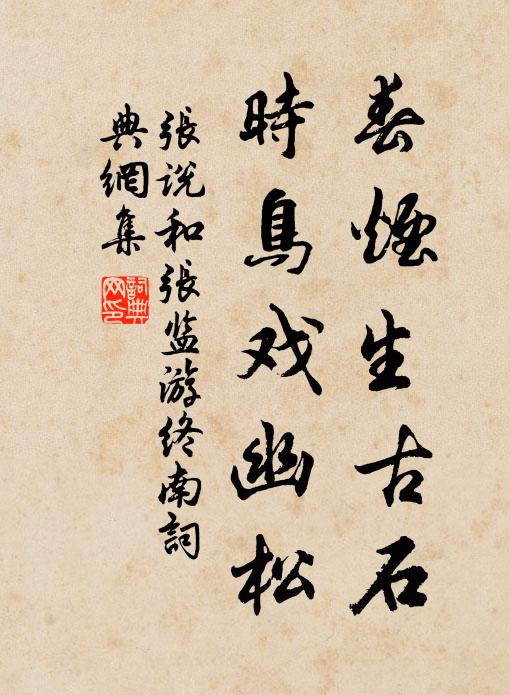 春煙生古石
時鳥戏幽松
張説和張监游终南詞
典網集
詞典
网印